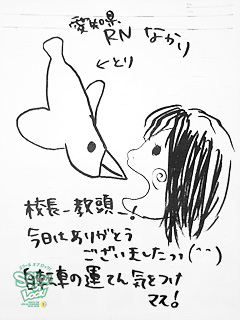 愛知県
RN なかり
←とり
校長ー教頭ー!
今日はありがとう
ございましたっっ(^^)
自転車の運てん気をつけ
てて!